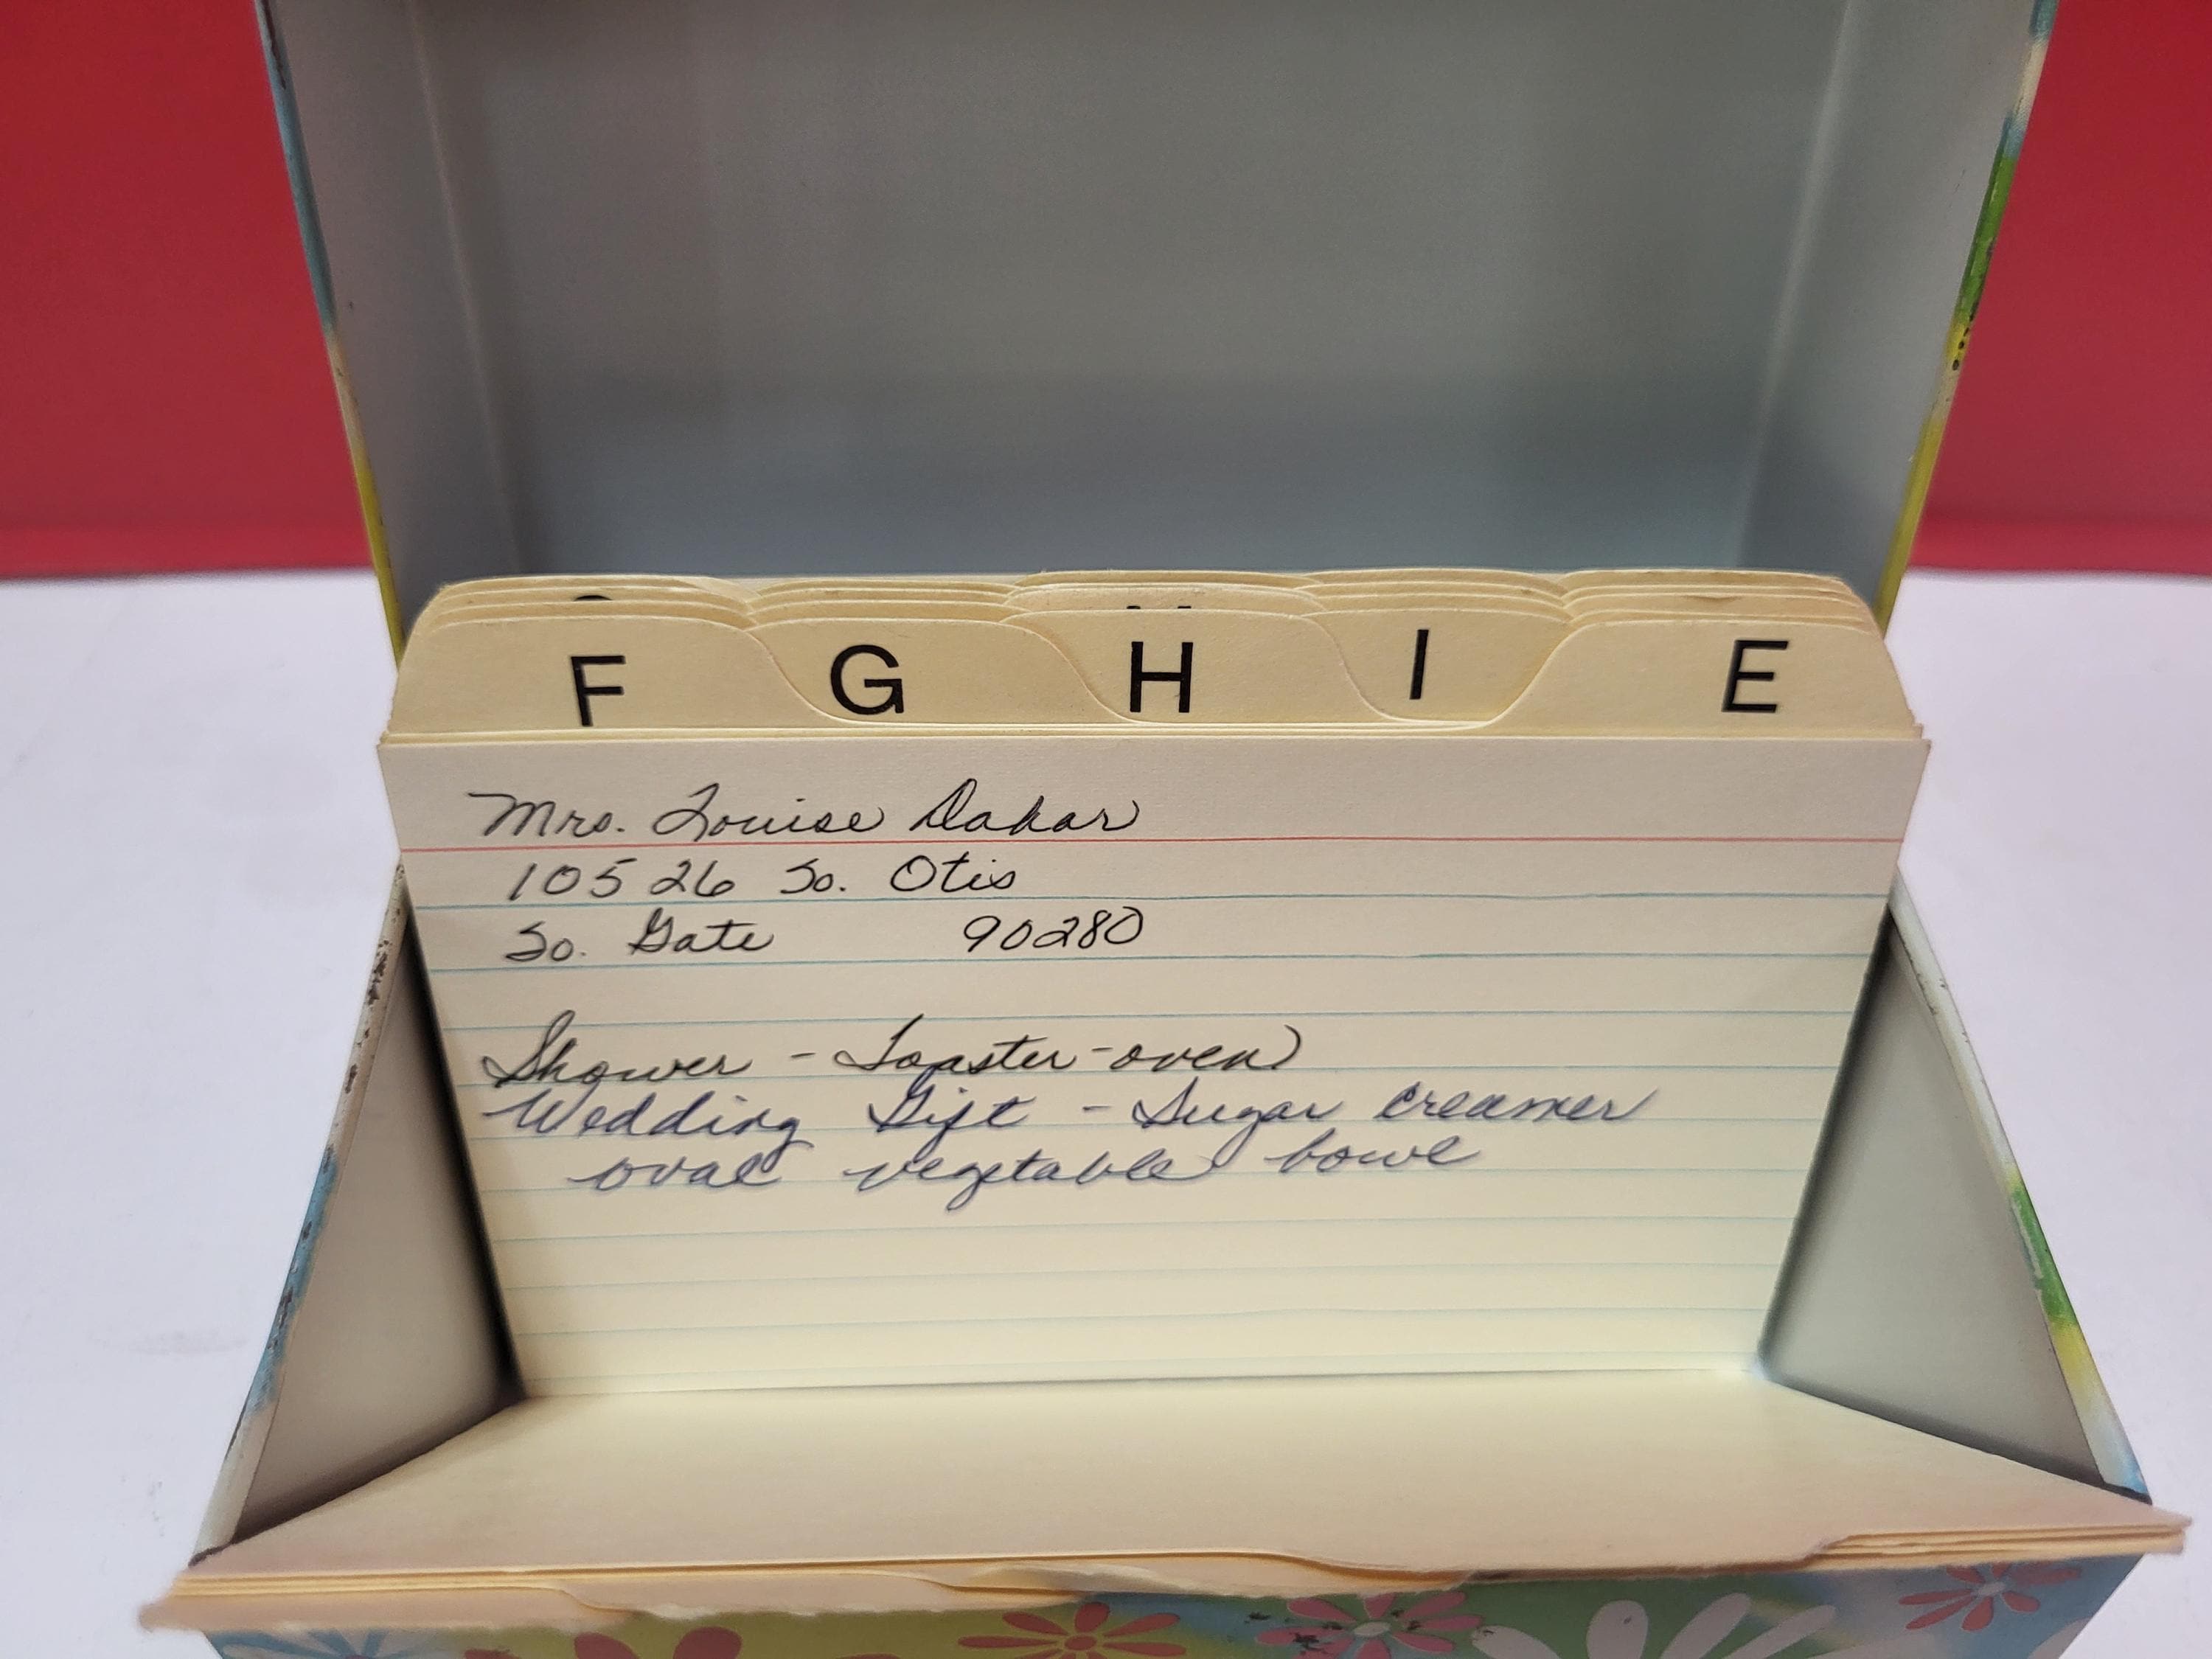 F G H I E
Mrs. Louise Dakar
10526 So. Otis
So. Gate 90280
Shower - Toaster-oven
Wedding Gift - Sugar creamer
oval vegetable bowl